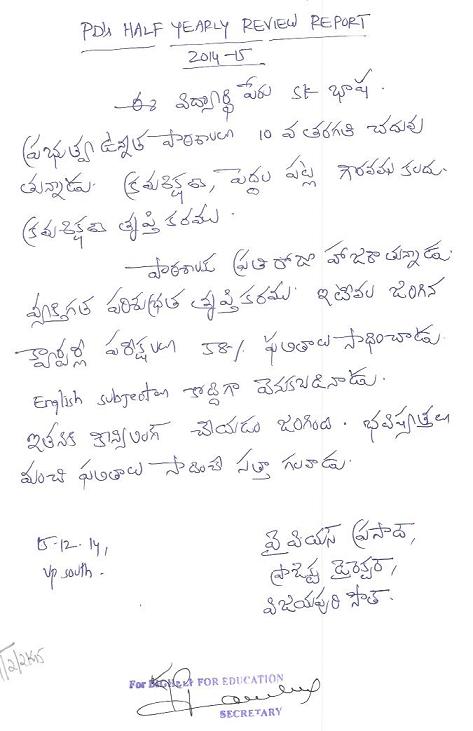 PDS HALF YEARLY REVIEW REPORT
2014-15
ఈ విద్యార్థి పేరు sk భాష.
ప్రభుత్వ ఉన్నత పాఠశాలలో 10 వ తరగతి చదువు
తున్నాడు. క్రమశిక్షణ, పెద్దల పట్ల గౌరవము కలదు.
క్రమశిక్షణ తృప్తి కరము.
పాఠశాలకు ప్రతి రోజూ హాజరౌతున్నాడు.
వ్యక్తిగత పరిశుభ్రత తృప్తికరము. ఇటీవల జరిగిన
క్వార్టర్లీ పరీక్షలలో 58% ఫలితాలు సాధించాడు.
English subjectలో కొద్దిగా వెనుకబడినాడు.
ఇతనికి కౌన్సిలింగ్ చేయడం జరిగింది. భవిష్యత్తులో
మంచి ఫలితాలు సాదించే సత్తా గలవాడు.
15-12-14,
VP south.
వై పియస్ ప్రసాద్,
ప్రాజెక్టు డైరెక్టర్,
విజయపురి సౌత్.
For FOR EDUCATION
SECRETARY